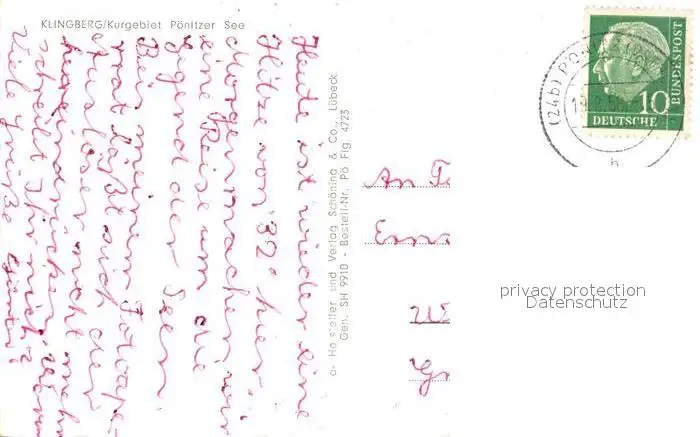 KLINGBERG/Kurgebiet Pönitzer See
Heute ist wieder eine
Hitze von 32° hier.
Morgen machen wir
eine Reise um die
Gegend der Seen
Bei meinem Fotoappa-
rat läßt sich der
Auslöser nicht mehr
schreibt Ihr nicht?
Viele Grüße
Hersteller und Verlag Schöning & Co., Lübeck
Gen. SH 9910 - Bestell-Nr. Pö Flg. 4723
An
(24b)
10
DEUTSCHE
BUNDESPOST
h
privacy protection
Datenschutz